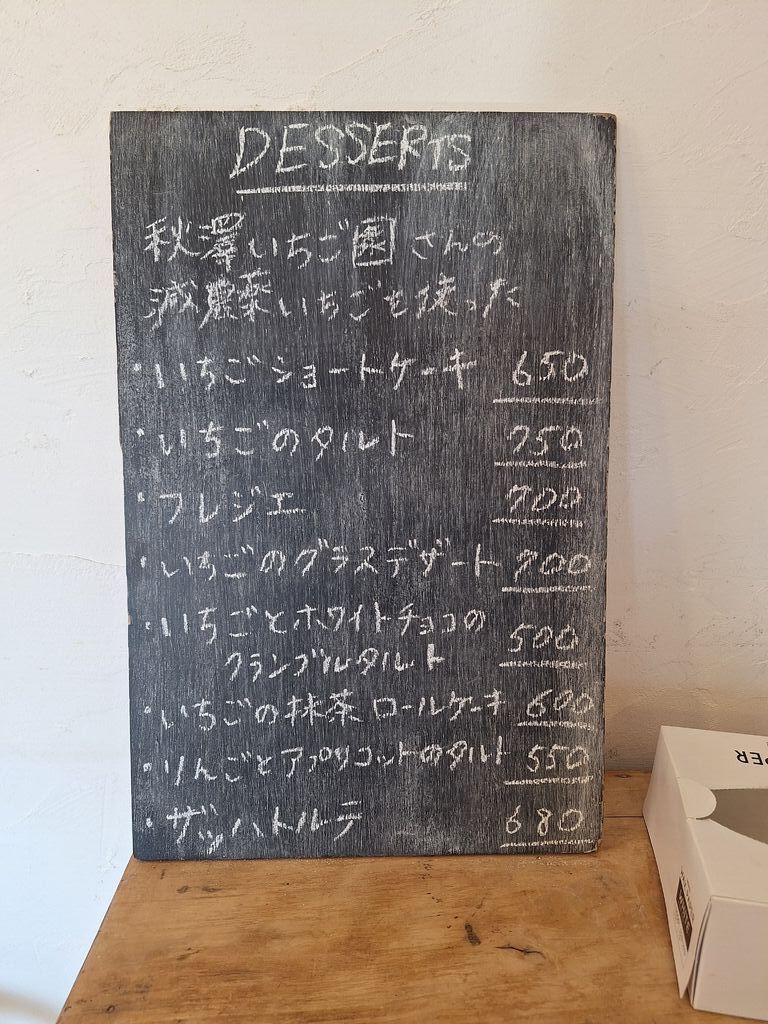 DESSERTS
秋澤いちご園さんの
減農薬いちごを使った
・いちごショートケーキ 650
・いちごのタルト 750
・フレジエ 700
・いちごのグラスデザート 700
・いちごとホワイトチョコの
クランブルタルト 500
・いちごの抹茶ロールケーキ 600
・りんごとアプリコットのタルト 550
・ザッハトルテ 680
PER